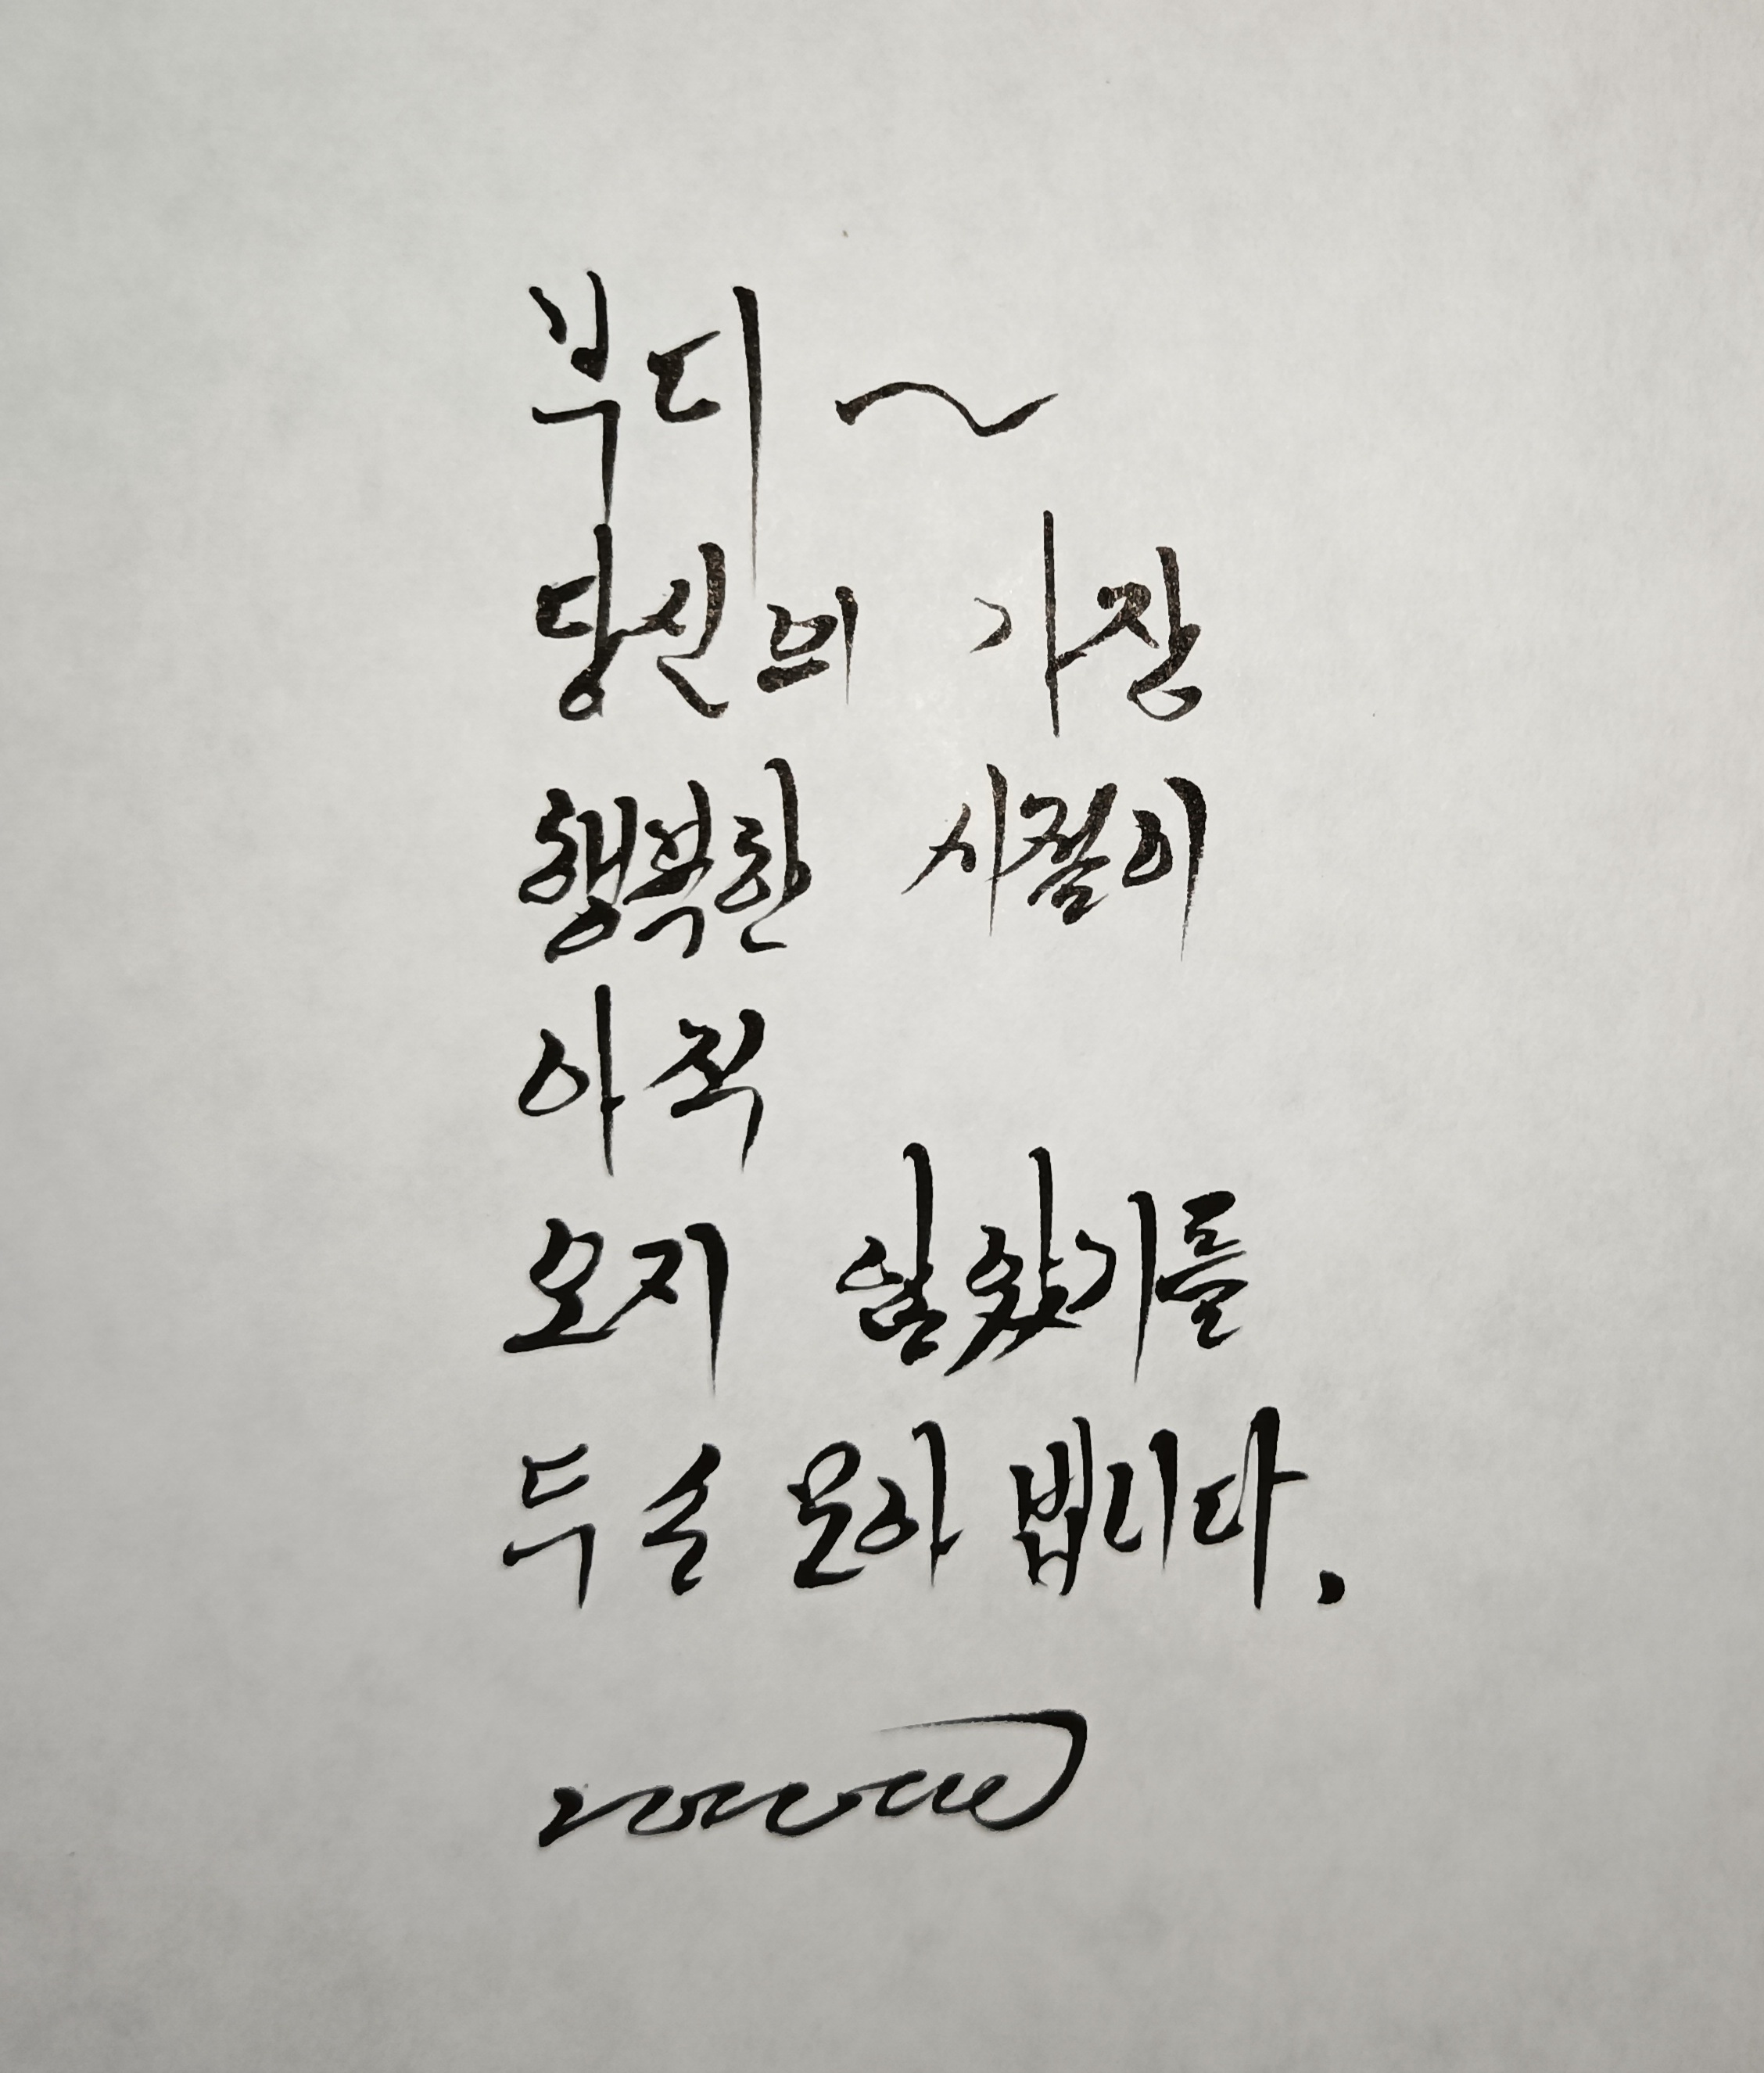 부디~
당신의 가장
행복한 시절이
아직
오지 않았기를
두 손 모아 빕니다.